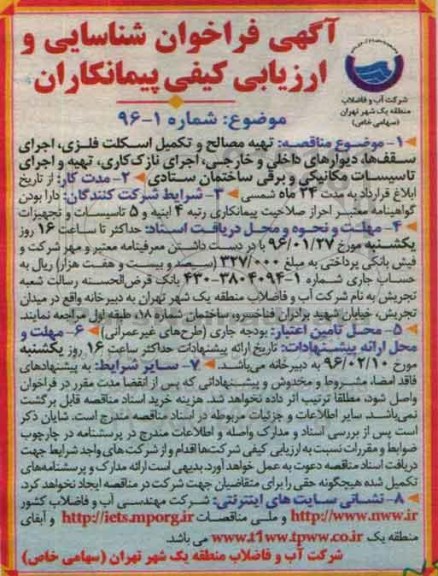 آگهی فراخوان شناسایی و
ارزیابی کیفی پیمانکاران
شرکت آب و فاضلاب
منطقه یک شهر تهران
(سهامی خاص)
موضوع: شماره ۱-۹۶
۱- موضوع مناقصه: تهیه مصالح و تکمیل اسکلت فلزی، اجرای
سقف‌ها، دیوارهای داخلی و خارجی، اجرای نازک‌کاری، تهیه و اجرای
تاسیسات مکانیکی و برقی ساختمان ستادی ۲- مدت کار: از تاریخ
ابلاغ قرارداد به مدت ۲۴ ماه شمسی ۳- شرایط شرکت کنندگان: دارا بودن
گواهینامه معتبر احراز صلاحیت پیمانکاری رتبه ۴ ابنیه و ۵ تاسیسات و تجهیزات
۴- مهلت و نحوه و محل دریافت اسناد: حداکثر تا ساعت ۱۶ روز
یکشنبه مورخ ۹۶/۰۱/۲۷ با در دست داشتن معرفینامه معتبر و مهر شرکت و
فیش بانکی پرداختی به مبلغ ۳۲۷/۰۰۰ (سیصد و بیست و هفت هزار) ریال به
حساب جاری شماره ۱-۳۸۰۴۰۹۴-۴۳۰ بانک قرض‌الحسنه رسالت شعبه
تجریش به نام شرکت آب و فاضلاب منطقه یک شهر تهران به دبیرخانه واقع در میدان
تجریش، خیابان شهید برادران فناخسرو، ساختمان شماره ۱۸، طبقه اول مراجعه نمایند.
۵- محل تامین اعتبار: بودجه جاری (طرح‌های غیرعمرانی) ۶- مهلت و
محل ارائه پیشنهادات: تاریخ ارائه پیشنهادات حداکثر ساعت ۱۶ روز یکشنبه
مورخ ۹۶/۰۲/۱۰ به دبیرخانه می‌باشد. ۷- سایر شرایط: به پیشنهادهای
فاقد امضا، مشروط و مخدوش و پیشنهاداتی که پس از انقضا مدت مقرر در فراخوان
واصل شود، مطلقا ترتیب اثر داده نخواهد شد. هزینه خرید اسناد مناقصه قابل برگشت
نمی‌باشد. سایر اطلاعات و جزئیات مربوطه در اسناد مناقصه مندرج است. شایان ذکر
است پس از بررسی اسناد و مدارک واصله و اطلاعات مندرج در پرسشنامه در چارچوب
ضوابط و مقررات نسبت به ارزیابی کیفی شرکت‌ها اقدام و از شرکت‌های واجد شرایط جهت
دریافت اسناد مناقصه دعوت به عمل خواهد آورد. بدیهی است ارائه مدارک و پرسشنامه‌های
تکمیل شده هیچگونه حقی را برای متقاضیان جهت شرکت در مناقصه ایجاد نخواهد کرد.
۸- نشانی سایت های اینترنتی: شرکت مهندسی آب و فاضلاب کشور
http://www.nww.ir و ملی مناقصات http://iets.mporg.ir و آبفای
منطقه یک www.t1ww.tpww.co.ir می باشد.
شرکت آب و فاضلاب منطقه یک شهر تهران (سهامی خاص)